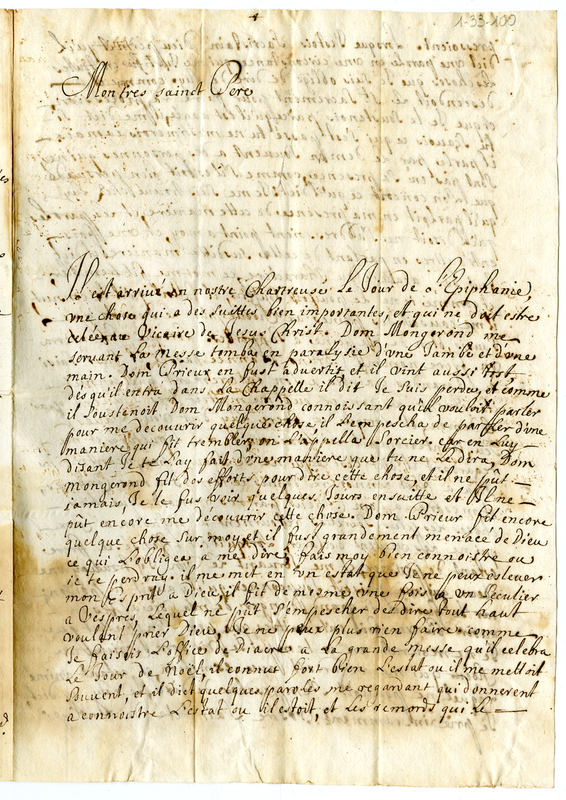 1-33-100
Mon tres sainct Pere
Il est arrivé en nostre Chartreuse le Jour de l'Epiphanie,
vne chose qui a des suittes bien importantes, et qui ne doit estre
celée au Vicaire de Jesus Christ. Dom Mongerond me
seruant la messe tomba en paralysie d'vne Jambe et d'vne
main. Dom Prieur en fust advertit et il vint aussi tost
dés qu'il entra dans la Chappelle il dit Je suis perdu, et comme
il soustenoit Dom Mongerond connoissant qu'il vouloit parler
pour me decouvrir quelque chose il l'empescha de parler d'vne
maniere qui fit trembler, on l'appella sorcier, car en luy
disant Je te l'ay fait d'vne maniere que tu ne le dira, Dom
mongerond fit des efforts pour dire cette chose, et il ne put
Jamais, Je le fus voir quelques Jours ensuitte et Il ne
put encore me découvrir cette chose. Dom Prieur fit encore
quelque chose sur moy, et il fust grandement menacé de Dieu
ce qui l'obligea à me dire, fais moy bien connoistre ou
ie te perdray. il me met en vn estat que Je ne peux eslever
mon Esprit à Dieu, il fit de mesme vne fois à vn seculier
a Vespres, lequel ne put s'empescher de dire tout haut
voulant prier Dieu, Je ne peux plus rien faire. comme
Je faisois l'office de Diacre a la grande messe qu'il celebra
le Jour de Noël, il connut fort bien l'estat ou il me mettoit
souvent, et il dict quelques paroles me regardant qui donnerent
a connoistre l'estat ou il estoit, et les remords qui le